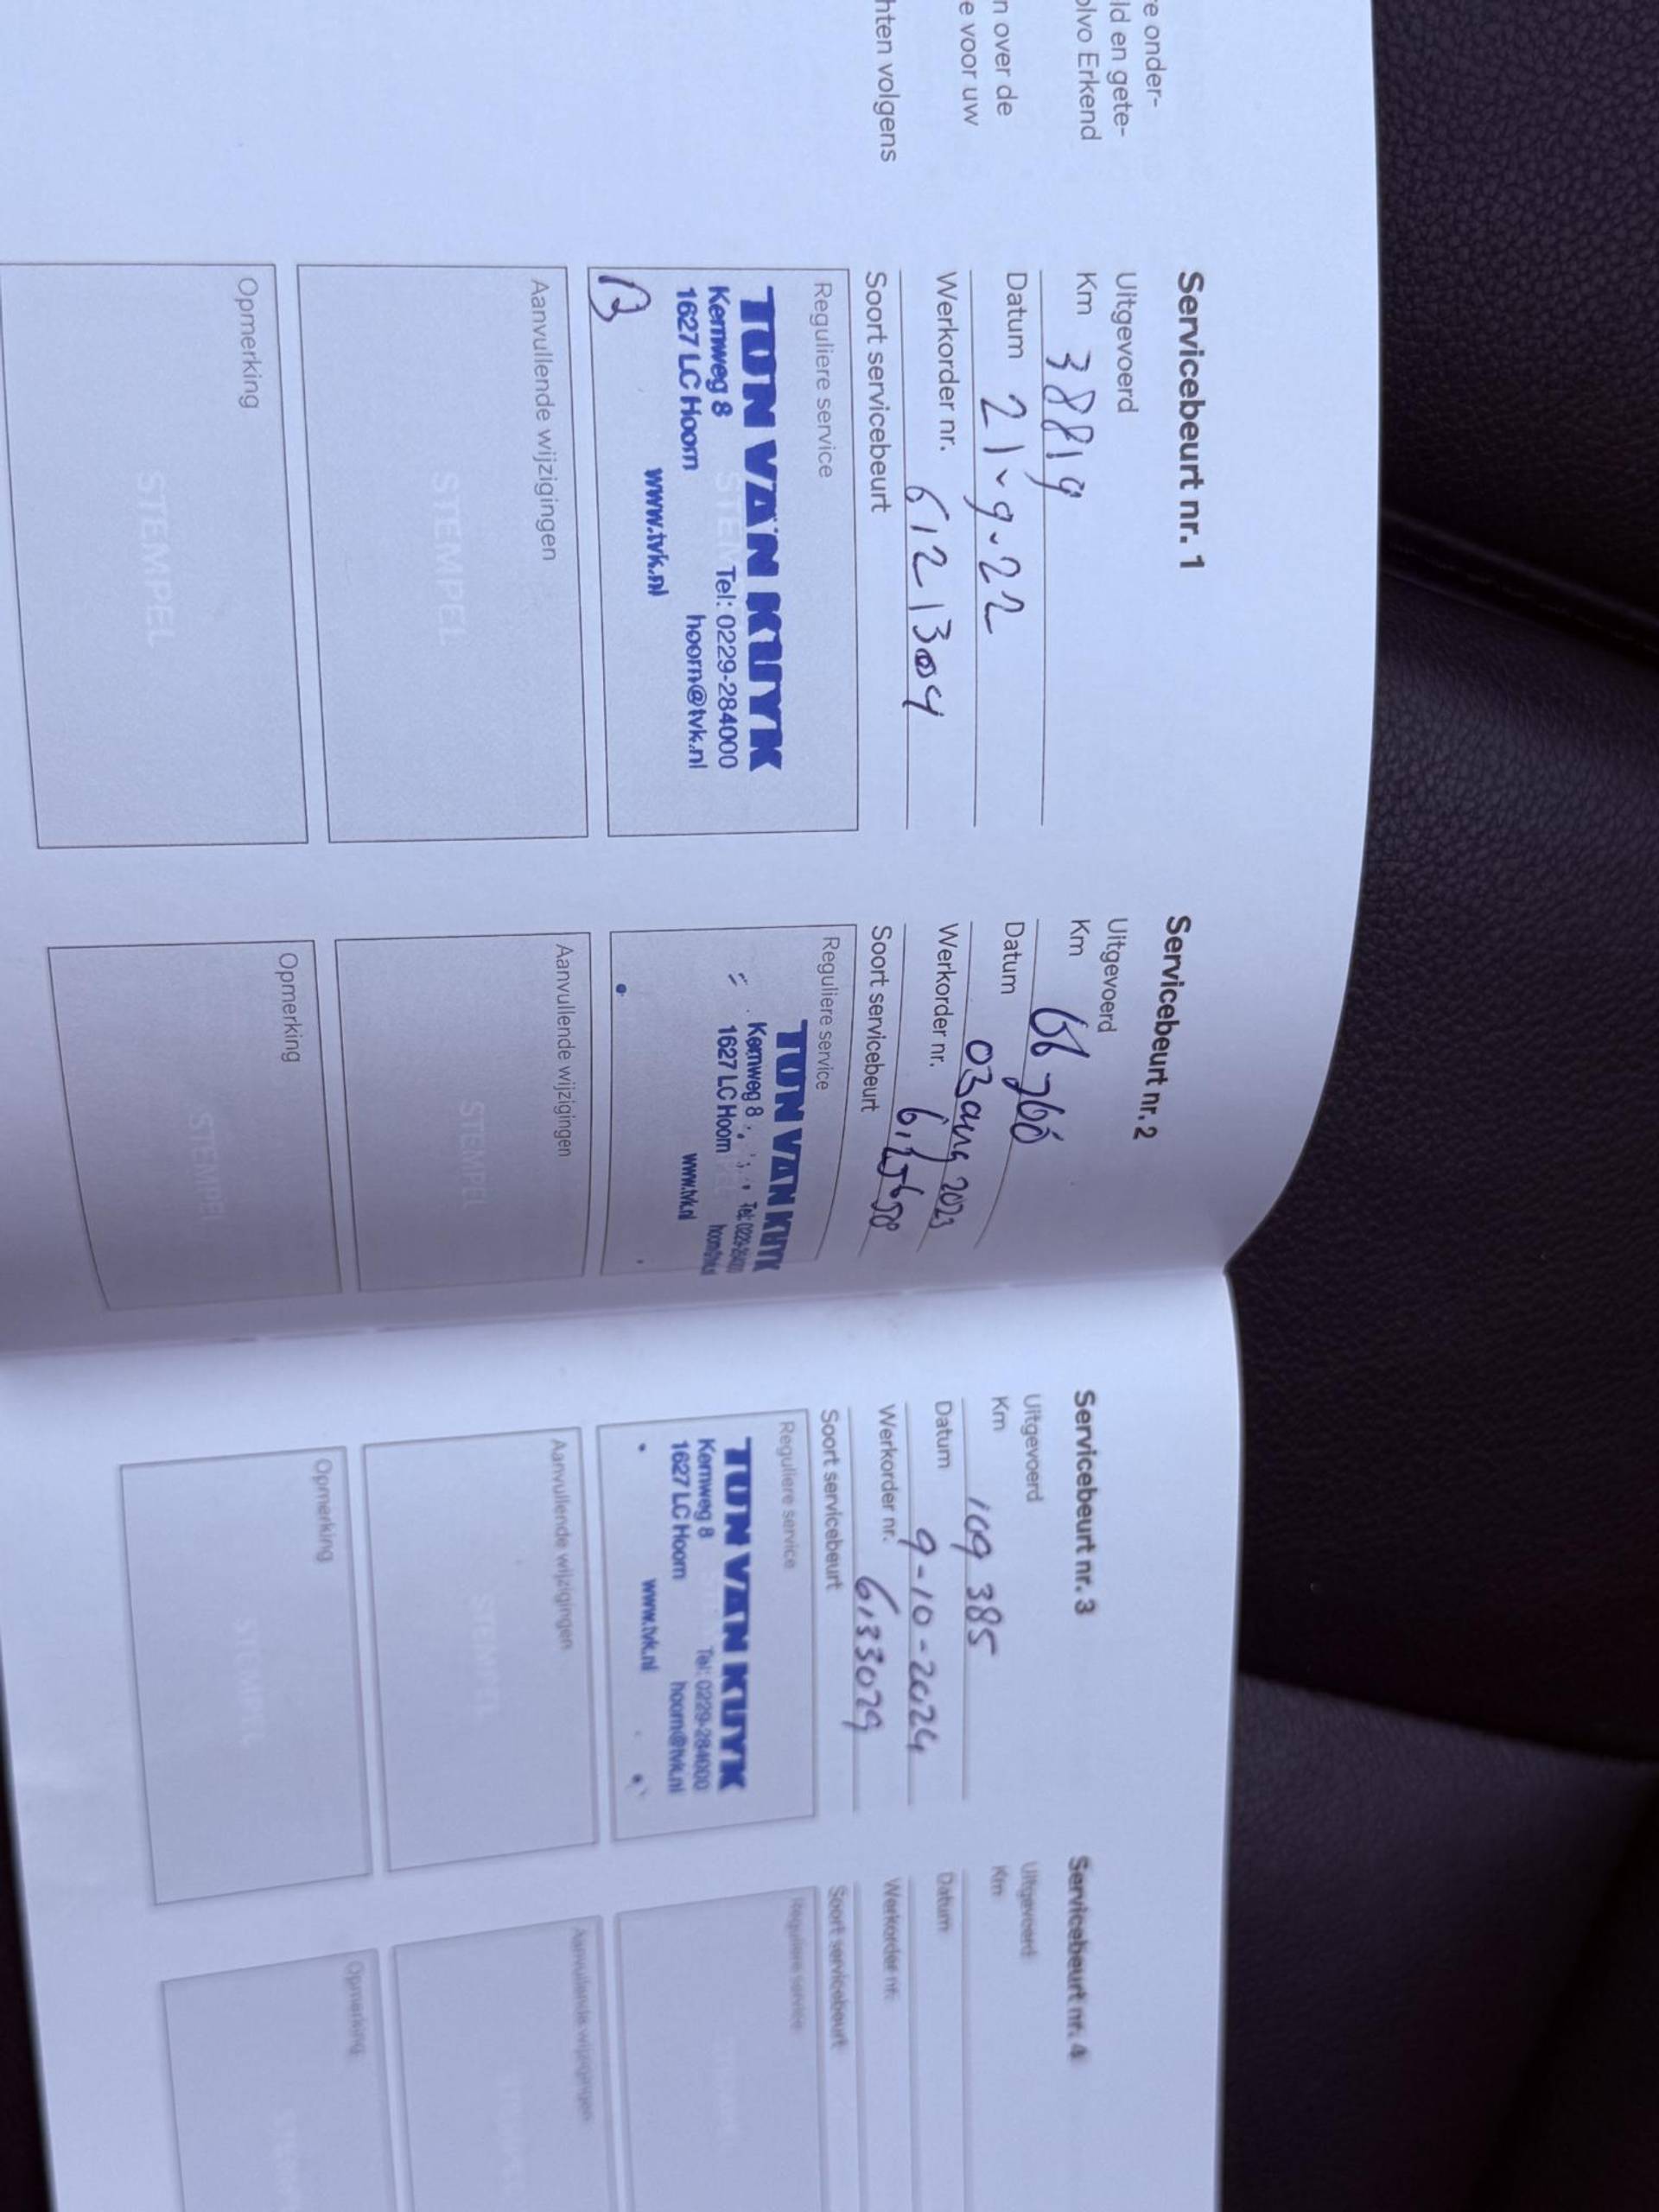 re onder-
ld en gete-
olvo Erkend
n over de
e voor uw
hten volgens
Servicebeurt nr. 1
Uitgevoerd
Km 38819
Datum 21-9-22
Werkorder nr. 6121304
Soort servicebeurt
Reguliere service
TON VAN KUYK
Kernweg 8 Tel: 0229-284000
1627 LC Hoorn hoorn@tvk.nl
www.tvk.nl
B
Aanvullende wijzigingen
STEMPEL
Opmerking
STEMPEL
Servicebeurt nr. 2
Uitgevoerd
Km
Datum 03 aug 2023
Werkorder nr.
Soort servicebeurt
Reguliere service
TON VAN KUYK
Kernweg 8 Tel: 0229-284000
1627 LC Hoorn
www.tvk.nl
Aanvullende wijzigingen
STEMPEL
Opmerking
STEMPEL
Servicebeurt nr. 3
Uitgevoerd
Km 109 385
Datum 9-10-2024
Werkorder nr. 6133029
Soort servicebeurt
Reguliere service
TON VAN KUYK
Kernweg 8 Tel: 0229-284000
1627 LC Hoorn hoorn@tvk.nl
www.tvk.nl
Aanvullende wijzigingen
STEMPEL
Opmerking
STEMPEL
Servicebeurt nr. 4
Uitgevoerd
Km
Datum
Werkorder nr.
Soort servicebeurt
Reguliere service
Aanvullende wijzigingen
Opmerking